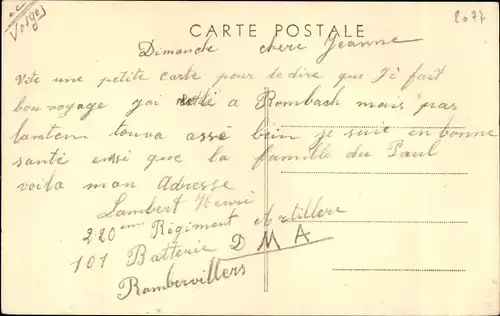 Vosges
CARTE POSTALE
2077
Dimanche chere Jeanne
Vite une petite carte pour te dire que J'è fait
bon voyage j'ai a Rombach mais pas
tout va assé bein je suie en bonne
santé ensi que la famille du Paul
voila mon Adresse
Lambert Henri
220 eme Regiment Artillere
101 Batterie D M A
Rambervillers